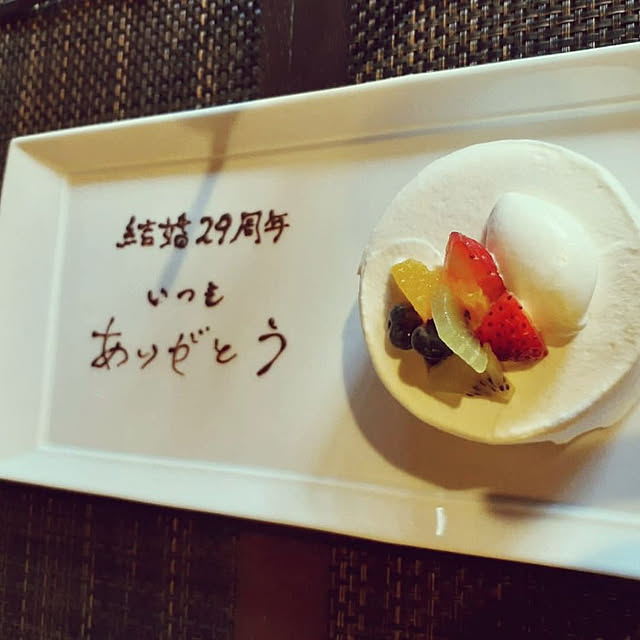 結婚29周年
いつも
ありがとう